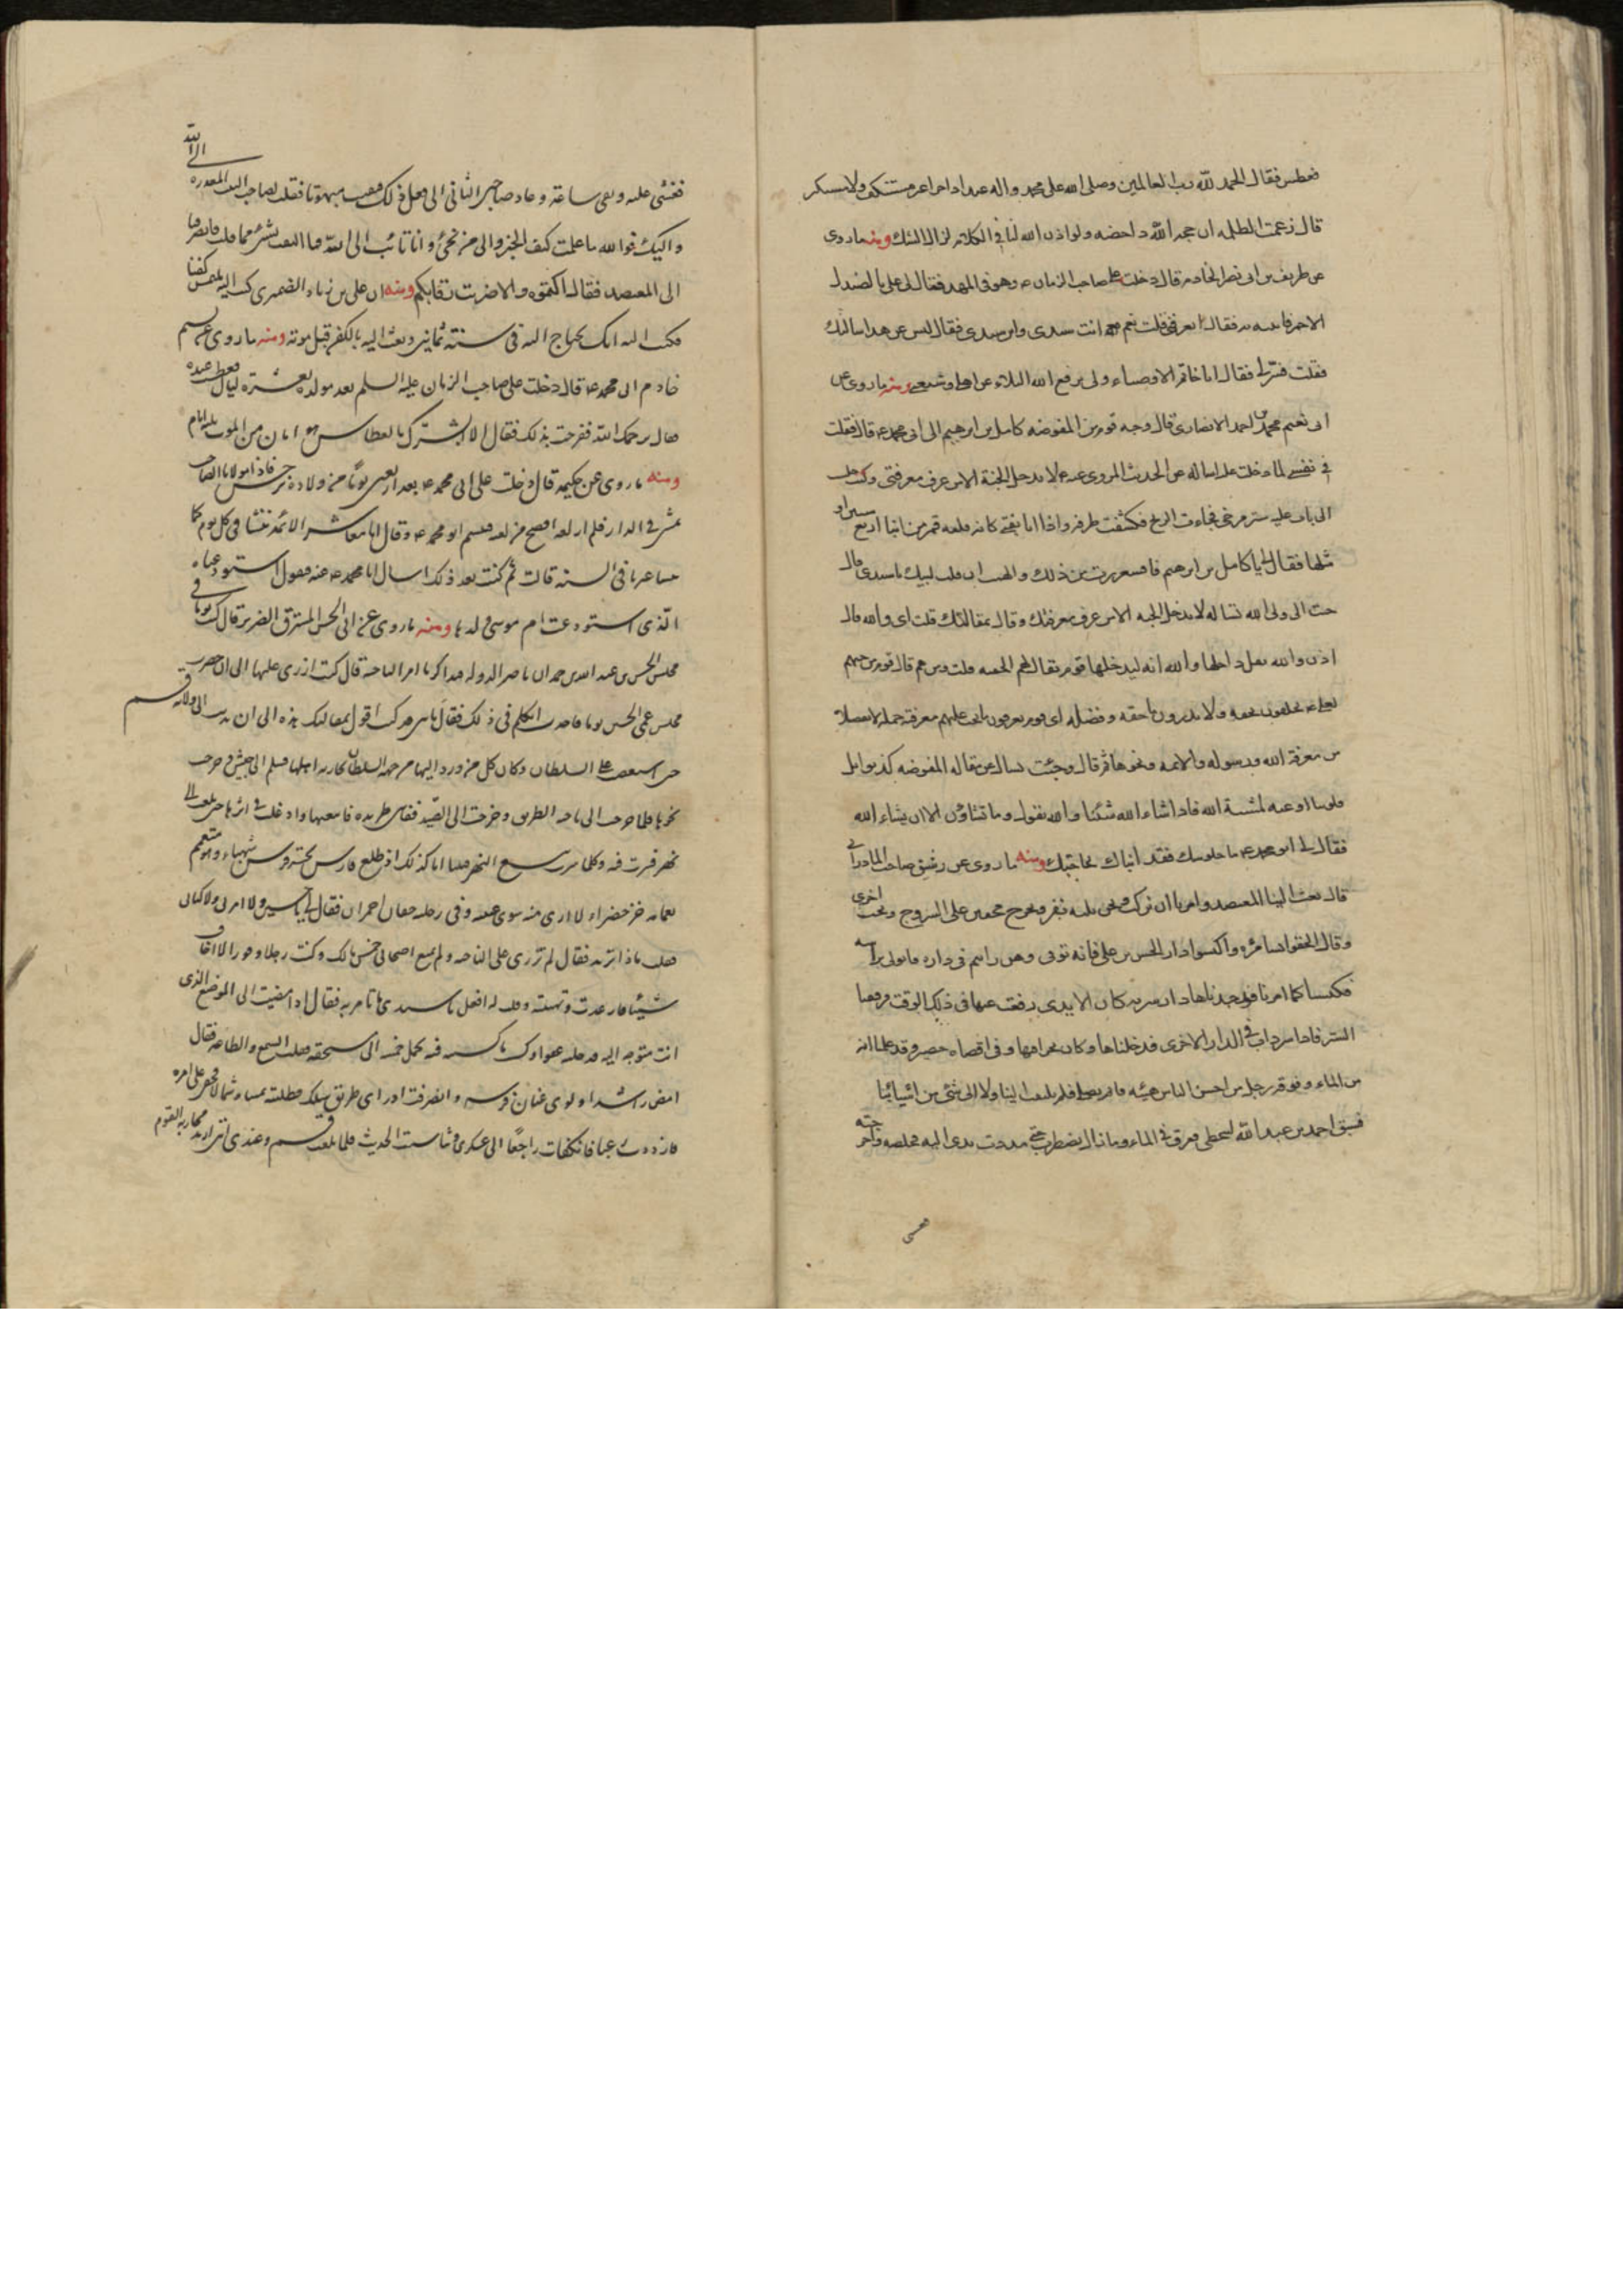 فعطس فقال الحمد لله رب العالمين وصلى الله على محمد واله عبدا داخرا غير مستنكف ولا مستكبر
قال زعمت الظلمه ان حجه الله داحضه ولو اذن الله لنا في الكلام لزال الشك ومنه ما روى
عن طريف بن ابي نصر الخادم قال دخلت على صاحب الزمان ع وهو في المهد فقال لي علي بالصندل
الاحمر فاتيته به فقال اتعرفني قلت نعم انت سيدي وابن سيدي فقال ليس عن هذا سالتك
فقلت فسر لي فقال انا خاتم الاوصياء وبي يرفع الله البلاء عن اهلي وشيعتي ومنه ما روى عن
ابي نعيم محمد بن احمد الانصاري قال وجه قوم من المفوضه كامل بن ابرهيم الى ابي محمد ع قال فقلت
في نفسي لما دخلت عليه اساله عن الحديث المروي عنه ع لا يدخل الجنة الا من عرف معرفتي وكنت جلست
الى باب عليه ستر مرخى فجاءت الريح فكشفت طرفه واذا انا بفتى كانه فلقه قمر من ابنا اربع سنين او
مثلها فقال لي يا كامل بن ابرهيم فاقشعررت من ذلك والهمت ان قلت لبيك يا سيدي قال
جئت الى ولي الله تساله لا يدخل الجنه الا من عرف معرفتك وقال بمقالتك قلت اى والله قال
اذن والله يقل داخلها والله انه ليدخلها قوم يقال لهم الحقيه قلت ومن هم قال قوم من حبهم
لعلي ع يحلفون بحقه ولا يدرون ما حقه وفضله اى قوم يعرفون ما يجب عليهم معرفته جملة لا تفصيلا
من معرفة الله ورسوله والائمه ونحوها ثم قال وجئت تسال عن مقاله المفوضه كذبوا بل
قلوبنا اوعيه لمشية الله فاذا شاء الله شئنا والله يقول وما تشاؤن الا ان يشاء الله
فقال لي ابو محمد ع ما جلوسك فقد انباك بحاجتك ومنه ما روى عن رشيق صاحب المادراني
قال بعث الينا المعتضد وامرنا ان نركب ونحن ثلثه نفر ونخرج مخفين على السروج ونجنب اخرى
وقال الحقوا بسامره واكبسوا دار الحسن بن علي فانه توفي ومن رايتم في داره فاتوني براسه
فكبسنا كما امرنا فوجدناها دارا سريه كان الايدى رفعت عنها في ذلك الوقت فرفعنا
الستر فاذا سرداب في الدار الاخرى فدخلناها وكان بحرا فيها وفي اقصاه حصير وقد علمنا انه
من الماء وفوقه رجل من احسن الناس هيئه قايم يصلي فلم يلتفت الينا ولا الى شئ من اسبابنا
فسبق احمد بن عبد الله ليتخطى فغرق في الماء وما زال يضطرب حتى مددت يدي اليه فخلصته واخرجته
فغشي عليه وبقي ساعة وعاد صاحبي الثاني الى فعل ذلك فبقيت مبهوتا فقلت لصاحب البيت المعذره الى الله
واليك فوالله ما علمت كيف الخبر والى من نجئ وانا تائب الى الله فما التفت بشئ مما قلت فانصرفنا
الى المعتضد فقال اكتموه والا ضربت رقابكم ومنه ان علي بن زياد الصيمري كتب اليه يلتمس كفنا
فكتب اليه انك تحتاج اليه في سنة ثمانين وبعث اليه بالكفن قبل موته ومنه ما روى عن نسيم
خادم ابي محمد ع قال دخلت على صاحب الزمان عليه السلم بعد مولده بعشرة ليال فعطست عنده
فقال يرحمك الله ففرحت بذلك فقال الا ابشرك بالعطاس هو امان من الموت ثلثة ايام
ومنه ما روى عن حكيمه قال دخلت على ابي محمد ع بعد اربعين يوما من ولادة نرجس فاذا مولانا الصاحب
يمشى في الدار فلم ار لغه افصح من لغته فتبسم ابو محمد ع وقال انا معاشر الائمه ننشا في كل يوم كما
ينشا غيرنا في السنه قالت ثم كنت بعد ذلك اسال ابا محمد ع عنه فيقول استودعناه
الذى استودعت ام موسى ولدها ومنه ما روى عن ابي الحسن المسترق الضرير قال كنت يوما في
مجلس الحسن بن عبد الله بن حمدان ناصر الدوله فتذاكرنا امر الناحيه قال كنت ازرى عليها الى ان حضرت
مجلس عمي الحسين يوما فاخذت اتكلم في ذلك فقال يا بني قد كنت اقول بمقالتك هذه الى ان ندبت الى ولاية قم
حين استصعب على السلطان وكان كل من ورد اليها من جهه السلطان يحاربه اهلها فسلم الى جيش فخرجت
نحوها فلما خرجت الى ناحيه الطريق وخرجت الى الصيد ففاتني طريده فاتبعتها واوغلت في اثرها حتى بلغت الى
نهر فسرت فيه وكلما سرت يتسع النهر فبينا انا كذلك اذ طلع فارس تحته فرس شهباء وهو متعمم
بعمامه خز خضراء لا ارى منه سوى عينيه وفي رجليه خفان احمران فقال لي يا حسين ولا امرني ولا كناني
فقلت ماذا تريد فقال لم تزرى على الناحيه ولم تمنع اصحابي خمس مالك وكنت رجلا وقورا لا اخاف
شيئا فارعدت وتهيبته وقلت له افعل يا سيدي ما تامر به فقال اذا مضيت الى الموضع الذى
انت متوجه اليه فدخلته عفوا وكسبت ما كسبت فيه تحمل خمسه الى مستحقه فقلت السمع والطاعه فقال
امض راشدا ولوى عنان فرسه وانصرفت فلم ادر اى طريق سلك فطلبته يمينا وشمالا فخفي على امره
فازددت رعبا فانكفات راجعا الى عسكري وتناسيت الحديث فلما بلغت قم وعندي اني اريد محاربه القوم